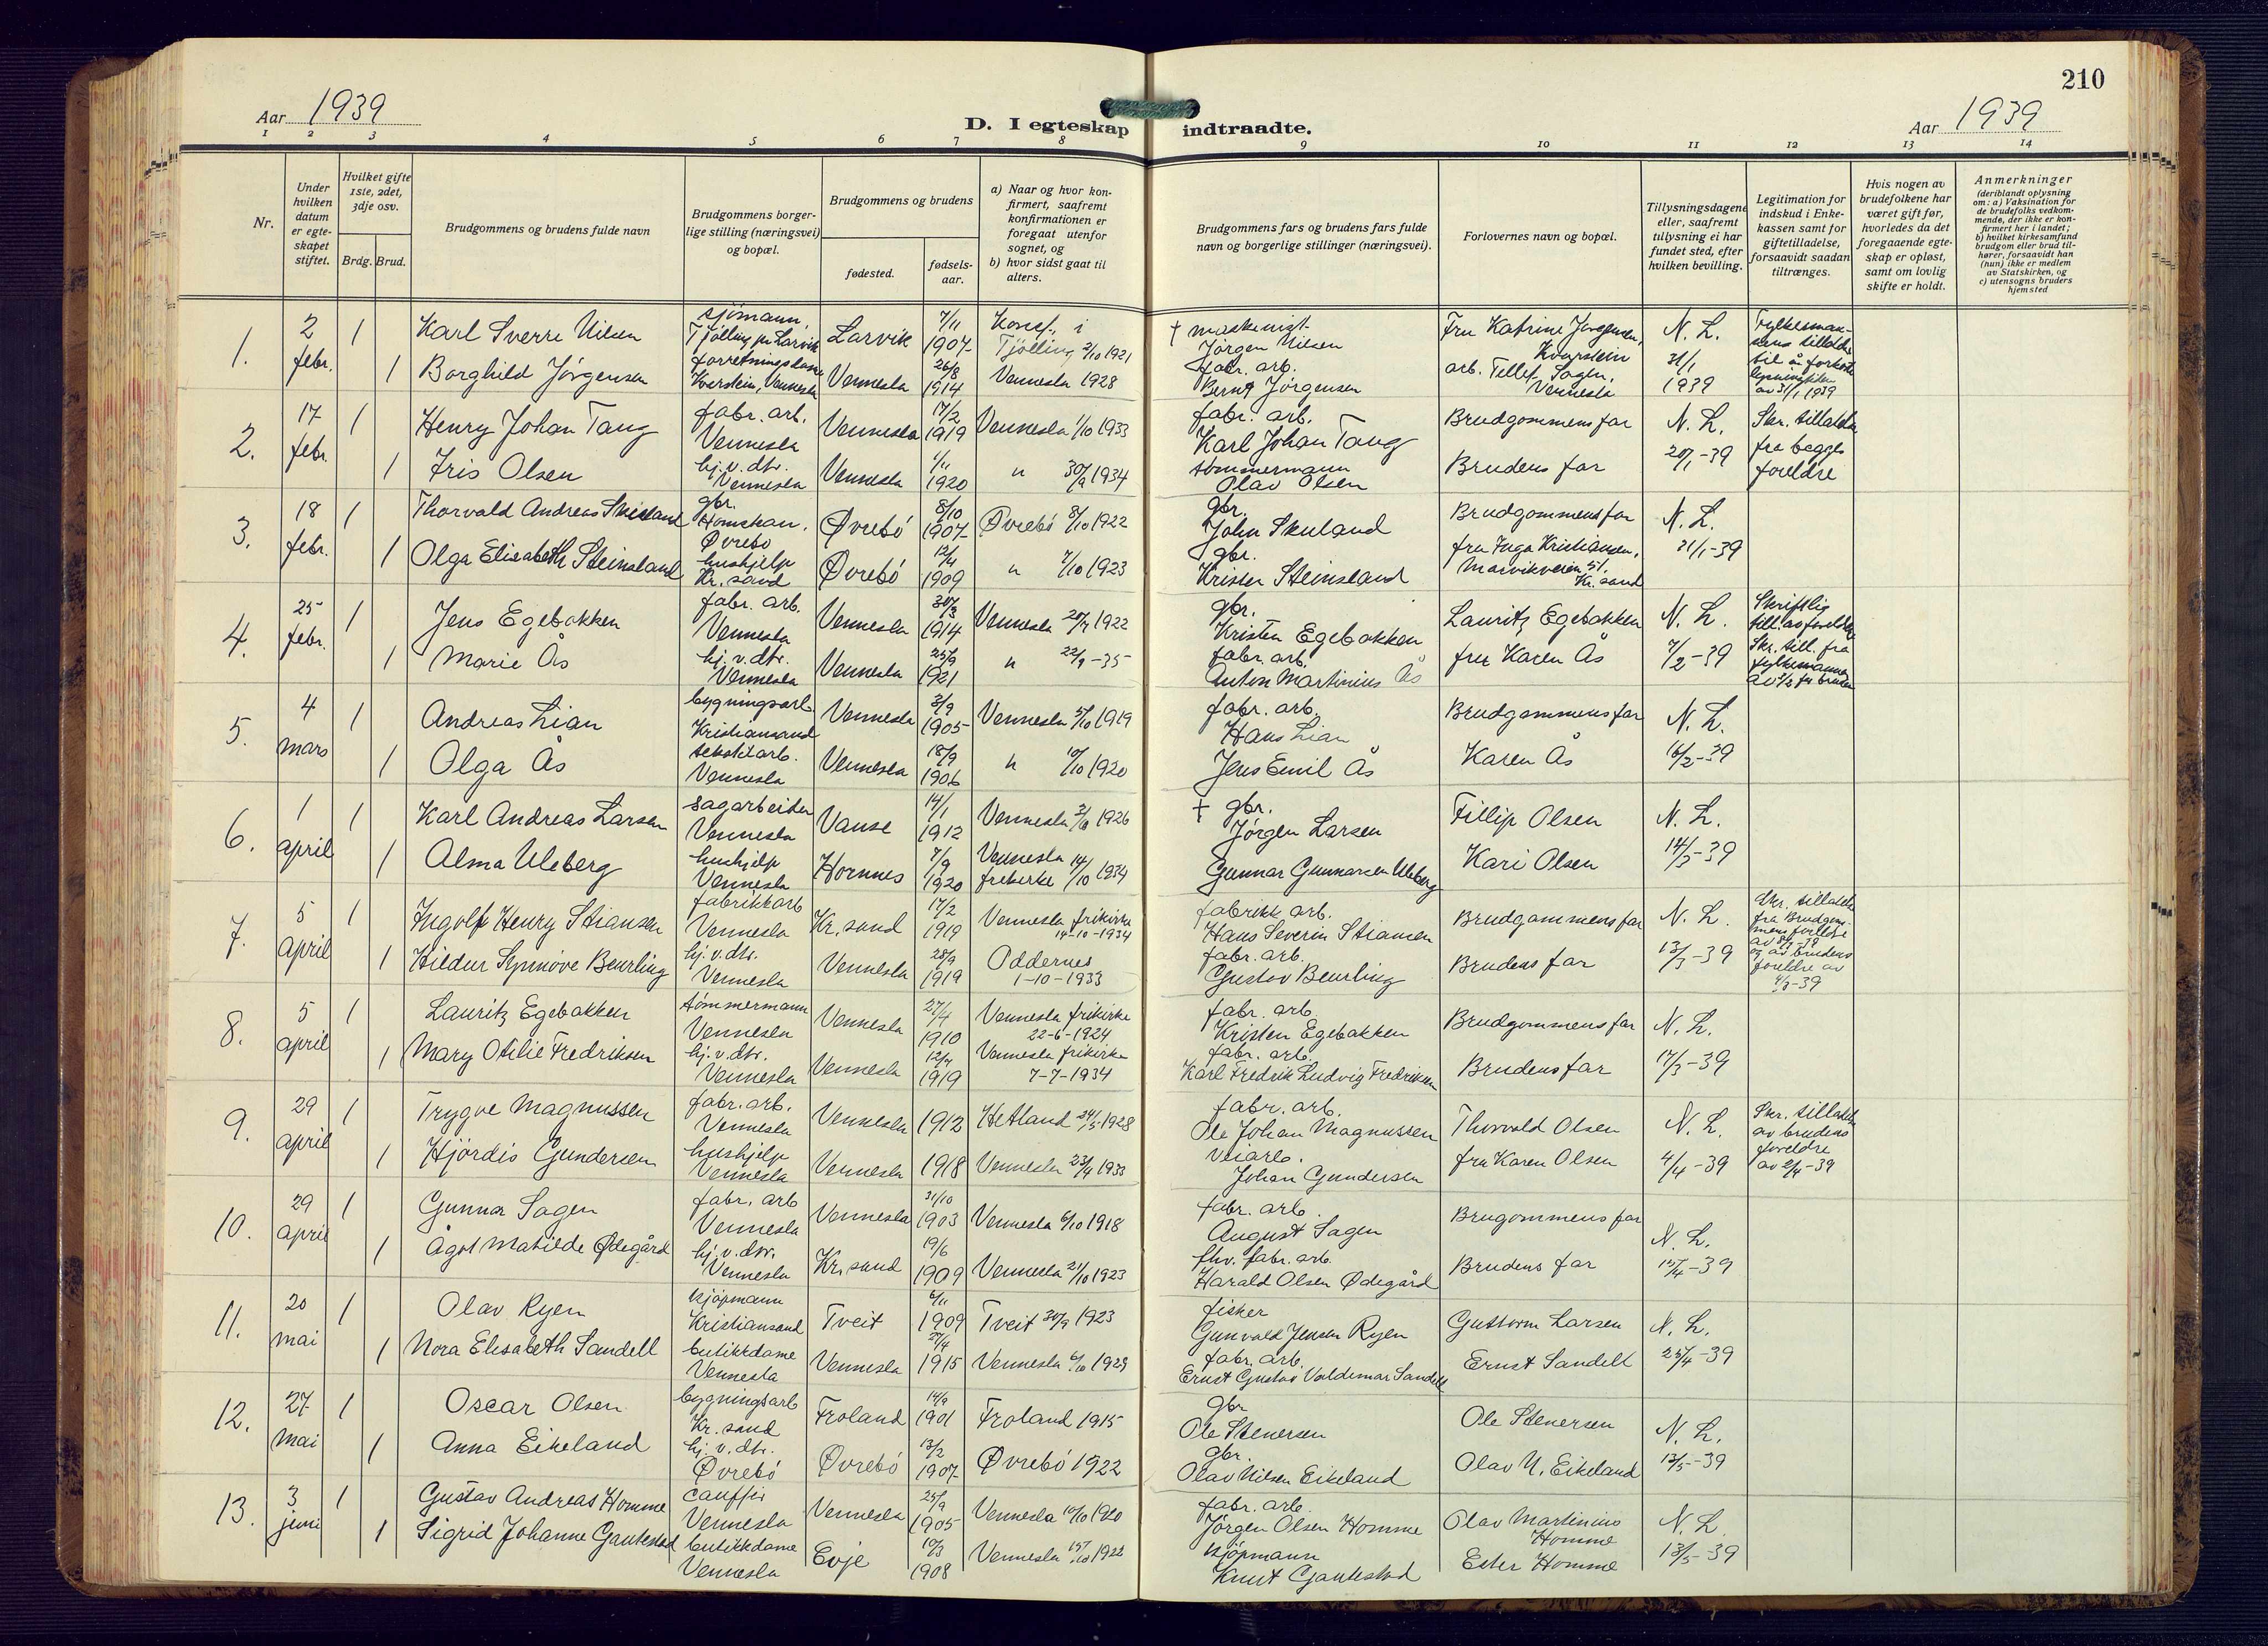 210
Aar 1939
D. I egteskap indtraadte.
Aar 1939
1 2 3 4 5 6 7 8 9 10 11 12 13 14
Nr.
Under hvilken datum er egteskapet stiftet.
Hvilket gifte 1ste, 2det, 3dje osv.
Brdg. Brud.
Brudgommens og brudens fulde navn
Brudgommens borgerlige stilling (næringsvei) og bopæl.
Brudgommens og brudens
fødested.
fødselsaar.
a) Naar og hvor konfirmert, saafremt konfirmationen er foregaat utenfor sognet, og
b) hvor sidst gaat til alters.
Brudgommens fars og brudens fars fulde navn og borgerlige stillinger (næringsvei).
Forlovernes navn og bopæl.
Tillysningsdagene eller, saafremt tillysning ei har fundet sted, efter hvilken bevilling.
Legitimation for indskud i Enkekassen samt for giftetilladelse, forsaavidt saadan tiltrænges.
Hvis nogen av brudefolkene har været gift før, hvorledes da det foregaaende egteskap er opløst, samt om lovlig skifte er holdt.
Anmerkninger
(deriblandt oplysning om: a) Vaksination for de brudefolks vedkommende, der ikke er konfirmert her i landet; b) hvilket kirkesamfund brudgom eller brud tilhører, forsaavidt han (hun) ikke er medlem av Statskirken, og c) utensogns bruders hjemsted
1. 2 febr. 1 Karl Sverre Nilsen sjömann, Tjölling pr Larvik Larvik 7/11 1907 Konf. i Tjölling 2/10 1921 † maskinist Jörgen Nilsen Fru Katrine Jörgensen, Kvarstein N. L. 21/1 1939
1 Borghild Jörgensen Kvarstein, Vennesla Vennesla 26/8 1914 Vennesla 1928 fabr. arb. Bernt Jörgensen arb. Tellef Sagen, Vennesla av 31/1 1939
2. 17 febr. 1 Henry Johan Tang fabr. arb. Vennesla Vennesla 17/2 1919 Vennesla 1/10 1933 fabr. arb. Karl Johan Tang Brudgommens far N. L. 20/1-39 Skr. tilladelse fra begges foreldre
1 Iris Olsen hj.v.dtr. Vennesla Vennesla 1/11 1920 " 30/9 1934 tömmermann Olav Olsen Brudens far
3. 18 febr. 1 Thorvald Andreas Skuland gbr. Homskan, Øvrebö Øvrebö 8/10 1907 Øvrebö 8/10 1922 gbr. John Skuland Brudgommens far N. L. 21/1-39
1 Olga Elisabeth Steinsland hushjelp Kr. sand Øvrebö 12/4 1909 " 7/10 1923 gbr. Krister Steinsland fru Inga Kristiansen, Marvikveien 51. Kr. sand
4. 25 febr. 1 Jens Egebakken fabr. arb. Vennesla Vennesla 30/3 1914 Vennesla 1922 gbr. Kristen Egebakken Lauritz Egebakken N. L. 7/2-39 Skriftlig till. av foreldre
1 Marie Ås hj.v.dtr. Vennesla Vennesla 25/9 1921 " 22/9-35 fabr. arb. Anton Martinius Ås fru Karen Ås Skr. till. fra fylkesmannen
5. 4 mars 1 Andreas Lian bygningsarb. Kristiansand Vennesla 2/9 1905 Vennesla 5/10 1919 fabr. arb. Hans Lian Brudgommens far N. L. 16/2-39
1 Olga Ås Vennesla Vennesla 18/9 1906 " 10/10 1920 Jens Emil Ås Karen Ås
6. 1 april 1 Karl Andreas Larsen sagarbeider Vennesla Vanse 14/1 1912 Vennesla 3/10 1926 † gbr. Jörgen Larsen Fillip Olsen N. L. 14/3-39
1 Alma Uleberg hushjelp Vennesla Hornnes 7/9 1920 Vennesla frikirke 14/10 1934 Gunnar Gunnarsen Uleberg Kari Olsen
7. 5 april 1 Ingolf Henry Stiansen fabrikkarb Vennesla Kr. sand 17/2 1919 Vennesla frikirke 14-10-1934 fabrikk arb. Hans Severin Stiansen Brudgommens far N. L. 13/3-39 Skr. tilladelse fra Brudgommens foreldre og av brudens foreldre av 4/3-39
1 Hildur Synnöve Beurling hj.v.dtr. Vennesla Vennesla 28/9 1919 Oddernes 1-10-1933 fabr. arb. Gustav Beurling Brudens far
8. 5 april 1 Lauritz Egebakken tömmermann Vennesla Vennesla 27/4 1910 Vennesla frikirke 22-6-1924 fabr. arb. Kristen Egebakken Brudgommens far N. L. 17/3-39
1 Mary Otilie Fredriksen hj.v.dtr. Vennesla Vennesla 12/4 1919 Vennesla frikirke 7-7-1934 fabr. arb. Karl Fredrik Ludvig Fredriksen Brudens far
9. 29 april 1 Trygve Magnussen fabr. arb. Vennesla Vennesla 1912 Hetland 24/5-1928 fabr. arb. Ole Johan Magnussen Thorvald Olsen N. L. 4/4-39 Skr. tilladelse av brudens foreldre av 2/4-39
1 Hjördis Gundersen hushjelp Vennesla Vennesla 1918 Vennesla 23/4 1933 veiarb. Johan Gundersen fru Karen Olsen
10. 29 april 1 Gunnar Sagen fabr. arb Vennesla Vennesla 31/10 1903 Vennesla 6/10 1918 fabr. arb. August Sagen Brugommens far N. L. 15/4-39
1 Ågot Mathilde Ødegård hj.v.dtr. Vennesla Kr. sand 19/6 1909 Vennesla 21/10 1923 fhv. fabr. arb. Harald Olsen Ødegård Brudens far
11. 20 mai 1 Olav Ryen kjöpmann Kristiansand Tveit 6/11 1909 Tveit 30/9 1923 fisker Gunvald Jensen Ryen Guttorm Larsen N. L. 25/4-39
1 Nora Elisabeth Sandell butikkdame Vennesla Vennesla 27/4 1915 Vennesla 6/10 1929 fabr. arb. Ernst Gustav Valdemar Sandell Ernst Sandell
12. 27 mai 1 Oscar Olsen bygningsarb Kr. sand Froland 14/9 1901 Froland 1915 gbr Ole Stenersen Ole Stenersen N. L. 13/5-39
1 Anna Eikeland hj.v.dtr. Øvrebö Øvrebö 13/2 1907 Øvrebö 1922 gbr. Olav Nilsen Eikeland Olav N. Eikeland
13. 3 juni 1 Gustav Andreas Homme Vennesla Vennesla 25/9 1905 Vennesla 10/10 1920 fabr. arb. Jörgen Olsen Homme Olav Martinius Homme N. L. 13/5-39
1 Sigrid Johanne Gautestad butikkdame Vennesla Evje 10/3 1908 Vennesla 15/10 1922 kjöpmann Knut Gautestad Ester Homme